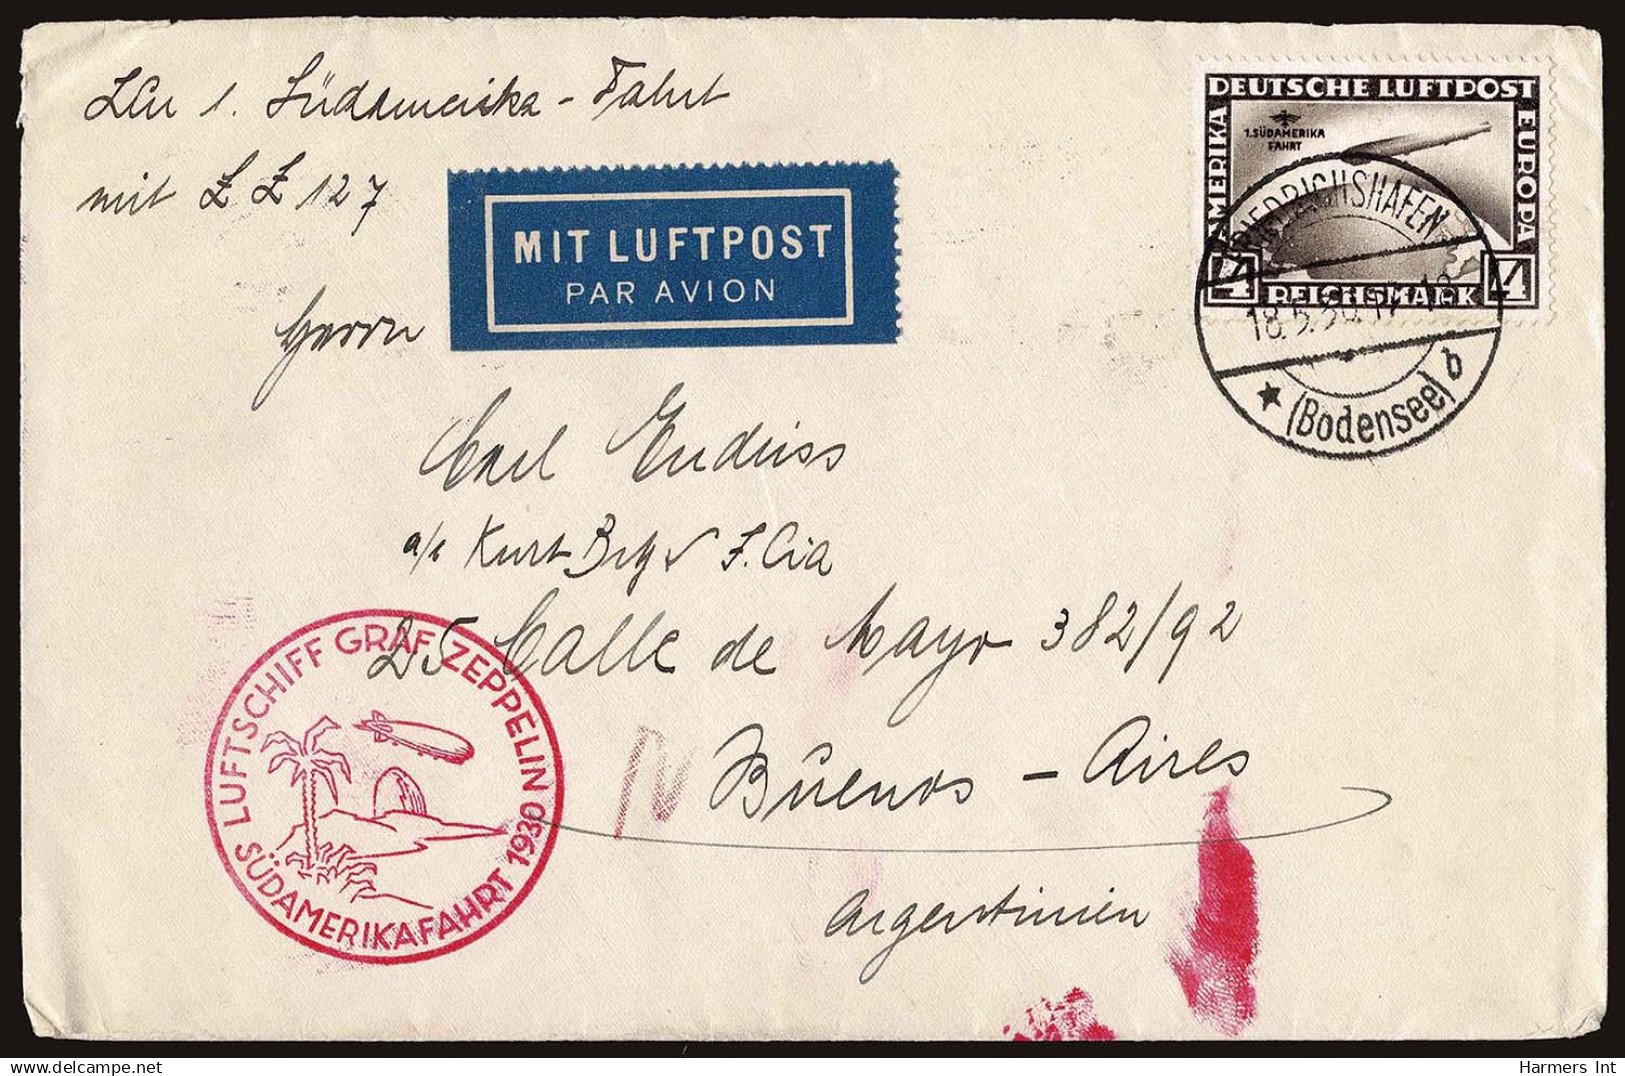 Zur 1. Südamerika-Fahrt
mit L Z 127
MIT LUFTPOST
PAR AVION
DEUTSCHE LUFTPOST
AMERIKA
EUROPA
1. SÜDAMERIKA
FAHRT
4 REICHSMARK 4
FRIEDRICHSHAFEN
18.5.30.17-18
(Bodensee) b
Herrn
Carl Endriss
a/c Kurt F. Cia
25 Calle de Mayo 382/92
Buenos-Aires
Argentinien
LUFTSCHIFF GRAF ZEPPELIN
SÜDAMERIKAFAHRT 1930
Harmers Int